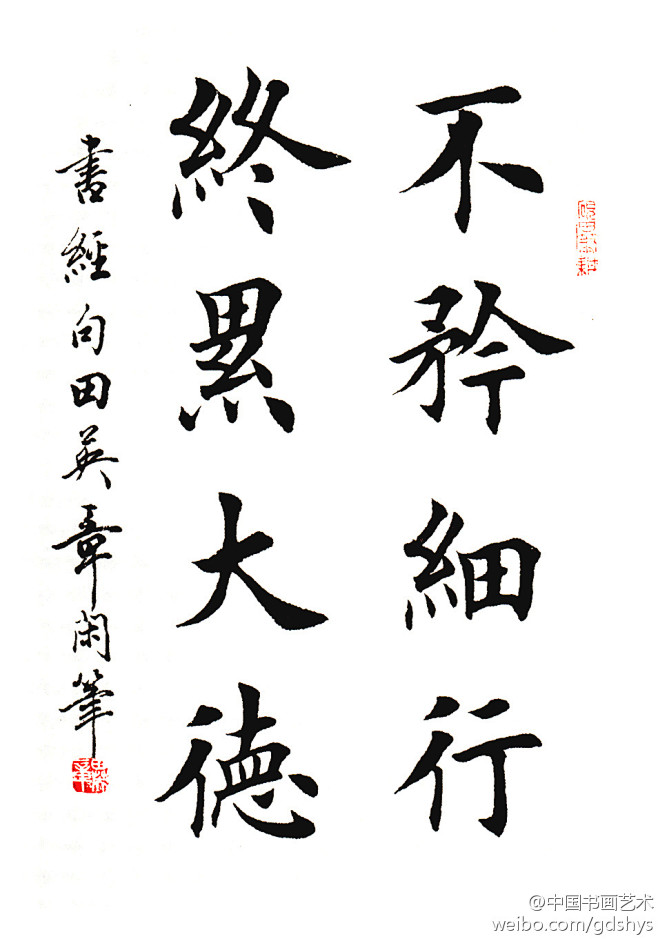 不矜細行
終累大德
書經句田英章閑筆
@中国书画艺术
weibo.com/gdshys